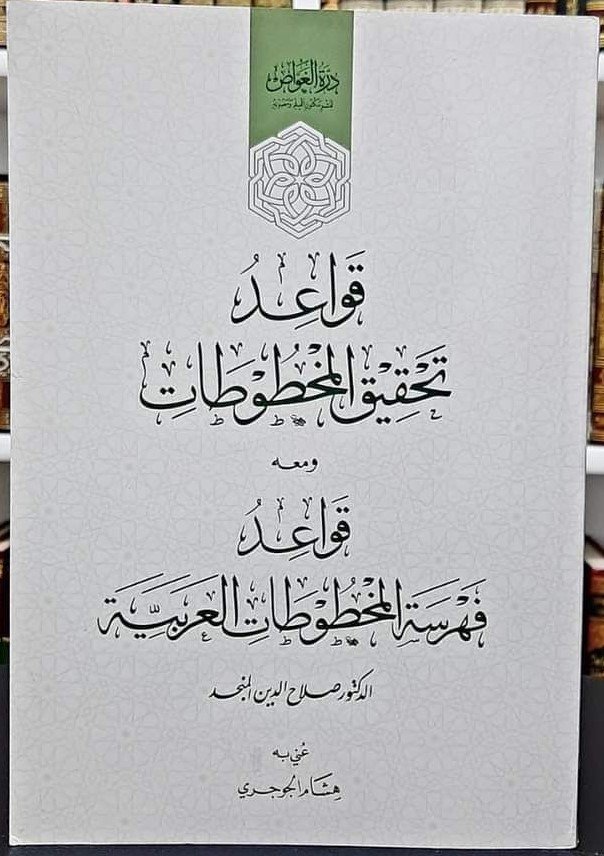 درة الغواص
لنشر مكنون العلم وتصويره
قَوَاعِدُ
تَحْقِيْقِ المَخْطُوْطَاتِ
ومعه
قَوَاعِدُ
فَهْرَسَةِ المَخْطُوْطَاتِ العَرَبِيَّةِ
الدكتور صلاح الدين المنجد
عُني به
هِشَام الجوجري